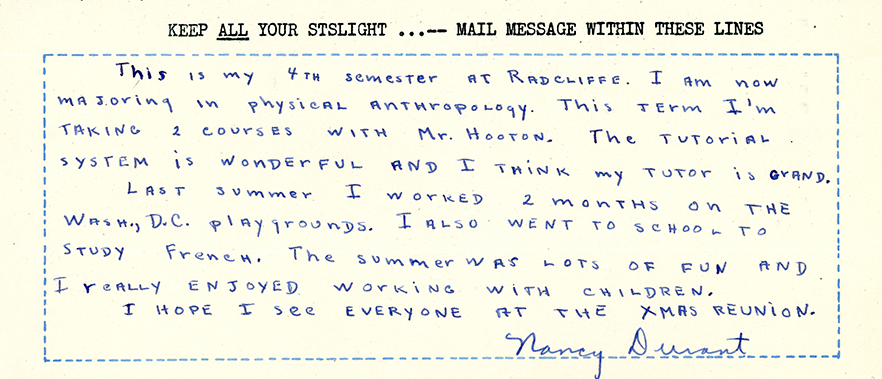 KEEP ALL YOUR STSLIGHT ...-- MAIL MESSAGE WITHIN THESE LINES
This is my 4TH semester AT RADCLIFFE. I AM now
majoring in physicAL ANTHROPOLOGY. This TERM I'm
TAKING 2 COURSES WITH Mr. HOOTON. The TUTORIAL
SYSTEM is WONDERFUL AND I THINK my TUTOR is GRAND.
LAST summer I WORKED 2 MONTHS ON THE
WASH., D.C. plAygrounds. I ALSO WENT TO SCHOOL TO
STUDY French. The summer WAS LOTS OF FUN AND
I reALLY ENJOYED WORKING WITH CHILDREN.
I HOPE I see EVERYONE AT THE XMAS REUNION.
Nancy Durant